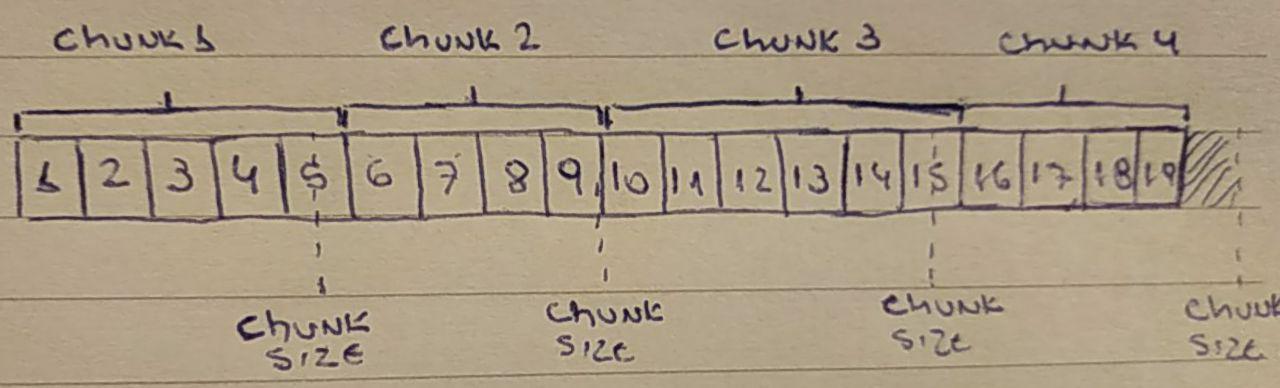 CHUNK 1 CHUNK 2 CHUNK 3 CHUNK 4
1 2 3 4 5 6 7 8 9 10 11 12 13 14 15 16 17 18 19
CHUNK CHUNK CHUNK CHUNK
SIZE SIZE SIZE SIZE